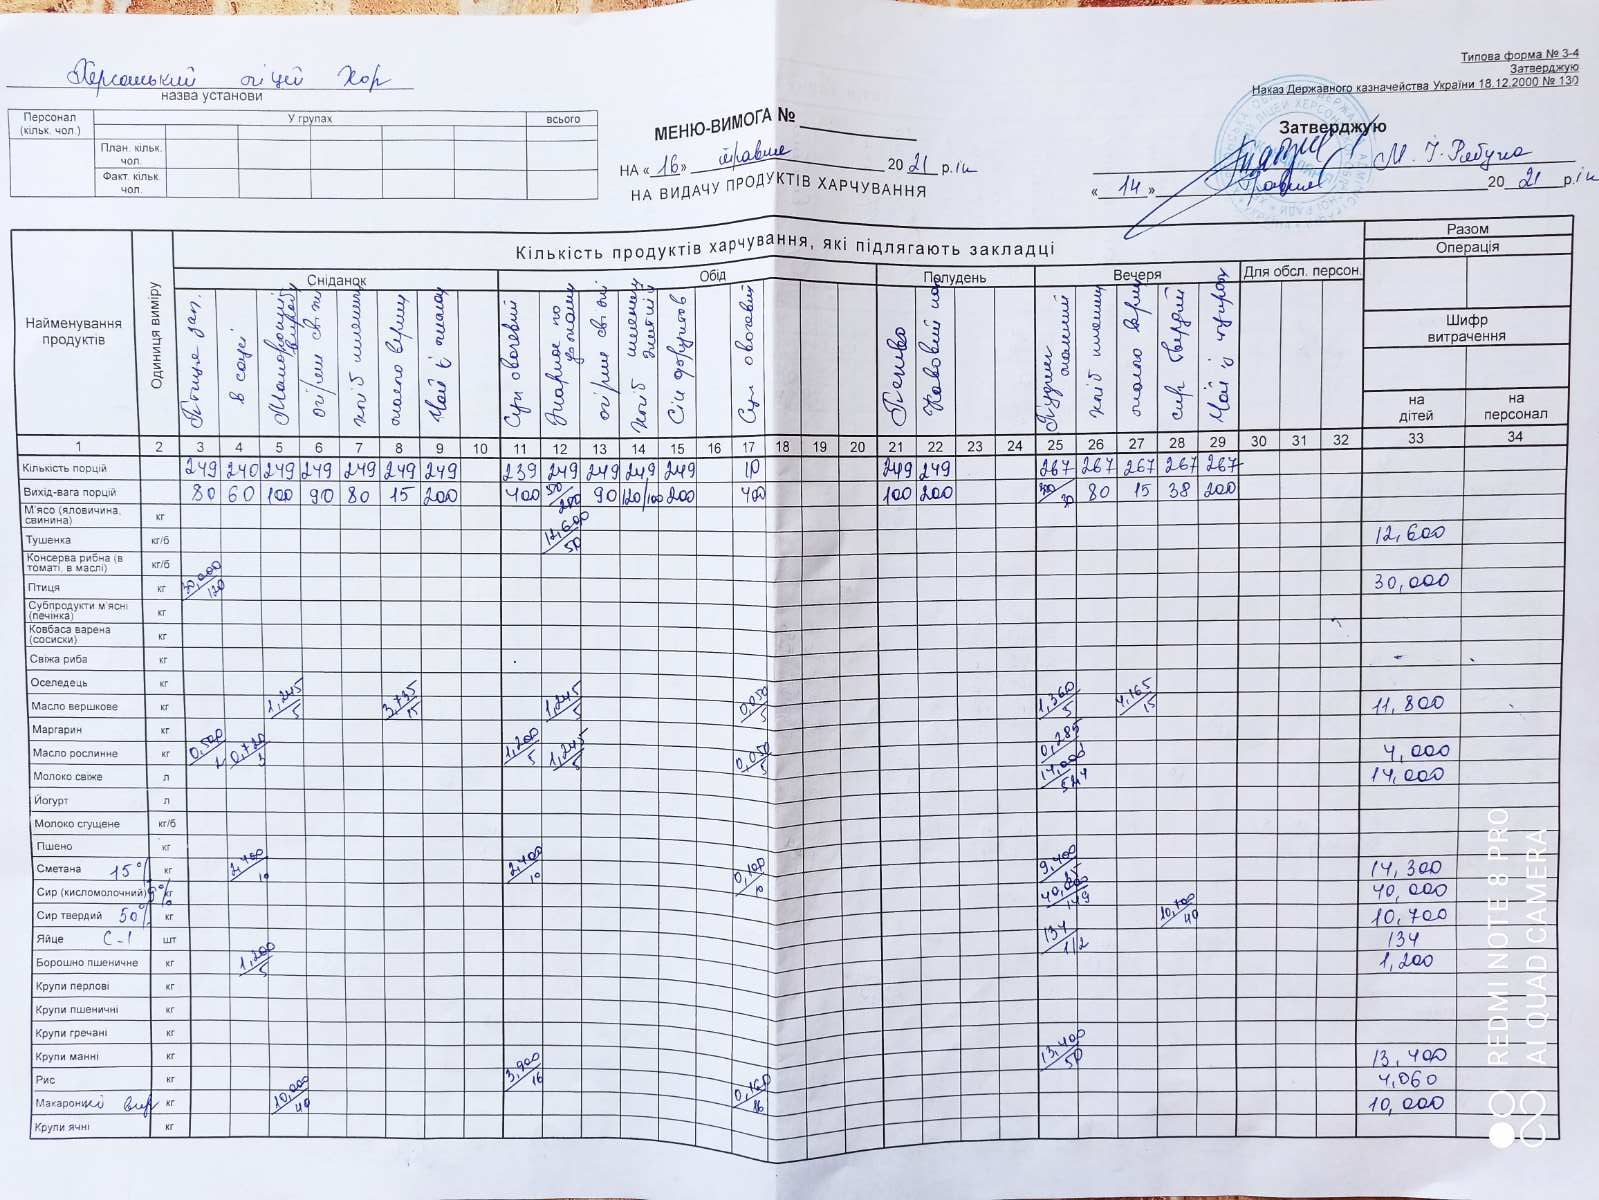 Типова форма № З-4
Затверджую
Наказ Державного казначейства України 18.12.2000 № 130
Херсонський ліцей ХОР
назва установи
Персонал (кільк. чол.) У групах всього
План. кільк. чол.
Факт. кільк. чол.
МЕНЮ-ВИМОГА №
НА «16» травня 2021 р.
НА ВИДАЧУ ПРОДУКТІВ ХАРЧУВАННЯ
Затверджую
«14» травня 2021 р.
Найменування продуктів
Одиниця виміру
Кількість продуктів харчування, які підлягають закладці
Разом
Операція
Сніданок Обід Полудень Вечеря Для обсл. персон.
Шифр витрачення
на дітей на персонал
Птиця зап.
в соусі
огірки свіжі
хліб пшеничн
масло верш
Суп овочевий
огірки свіжі
хліб
Сік фруктов
Суп овочевий
Печиво
хліб пшенич
масло верш
сир твердий
1 2 3 4 5 6 7 8 9 10 11 12 13 14 15 16 17 18 19 20 21 22 23 24 25 26 27 28 29 30 31 32 33 34
Кількість порцій 249 240 249 249 249 249 249 239 249 249 249 249 10 249 249 267 267 267 267 267
Вихід-вага порцій 80 60 100 90 80 15 200 400 50/200 90 120/100 200 400 100 200 80 15 38 200
М'ясо (яловичина, свинина) кг
Тушенка кг/б 12,600/50 12,600
Консерва рибна (в томаті, в маслі) кг/б
Птиця кг 30,000/120 30,000
Субпродукти м'ясні (печінка) кг
Ковбаса варена (сосиски) кг
Свіжа риба кг
Оселедець кг
Масло вершкове кг 1,245/5 3,735/15 1,245/5 0,050/5 1,360/5 4,165/15 11,800
Маргарин кг
Масло рослинне кг 0,500/2 0,720/3 1,200/5 1,245/5 0,050/5 0,285 4,000
Молоко свіже л 14,000/52,4 14,000
Йогурт л
Молоко сгущене кг/б
Пшено кг
Сметана 15% кг 2,400/10 2,400/10 0,100/10 9,400/35 14,300
Сир (кисломолочний) 9% кг 40,000/149 40,000
Сир твердий 50% кг 10,700/40 10,700
Яйце С-1 шт 134/1/2 134
Борошно пшеничне кг 1,200/5 1,200
Крупи перлові кг
Крупи пшеничні кг
Крупи гречані кг
Крупи манні кг 13,400/50 13,400
Рис кг 3,900/16 0,160/16 4,060
Макаронні вир кг 10,000/40 10,000
Крупи ячні кг
REDMI NOTE 8 PRO
AI QUAD CAMERA